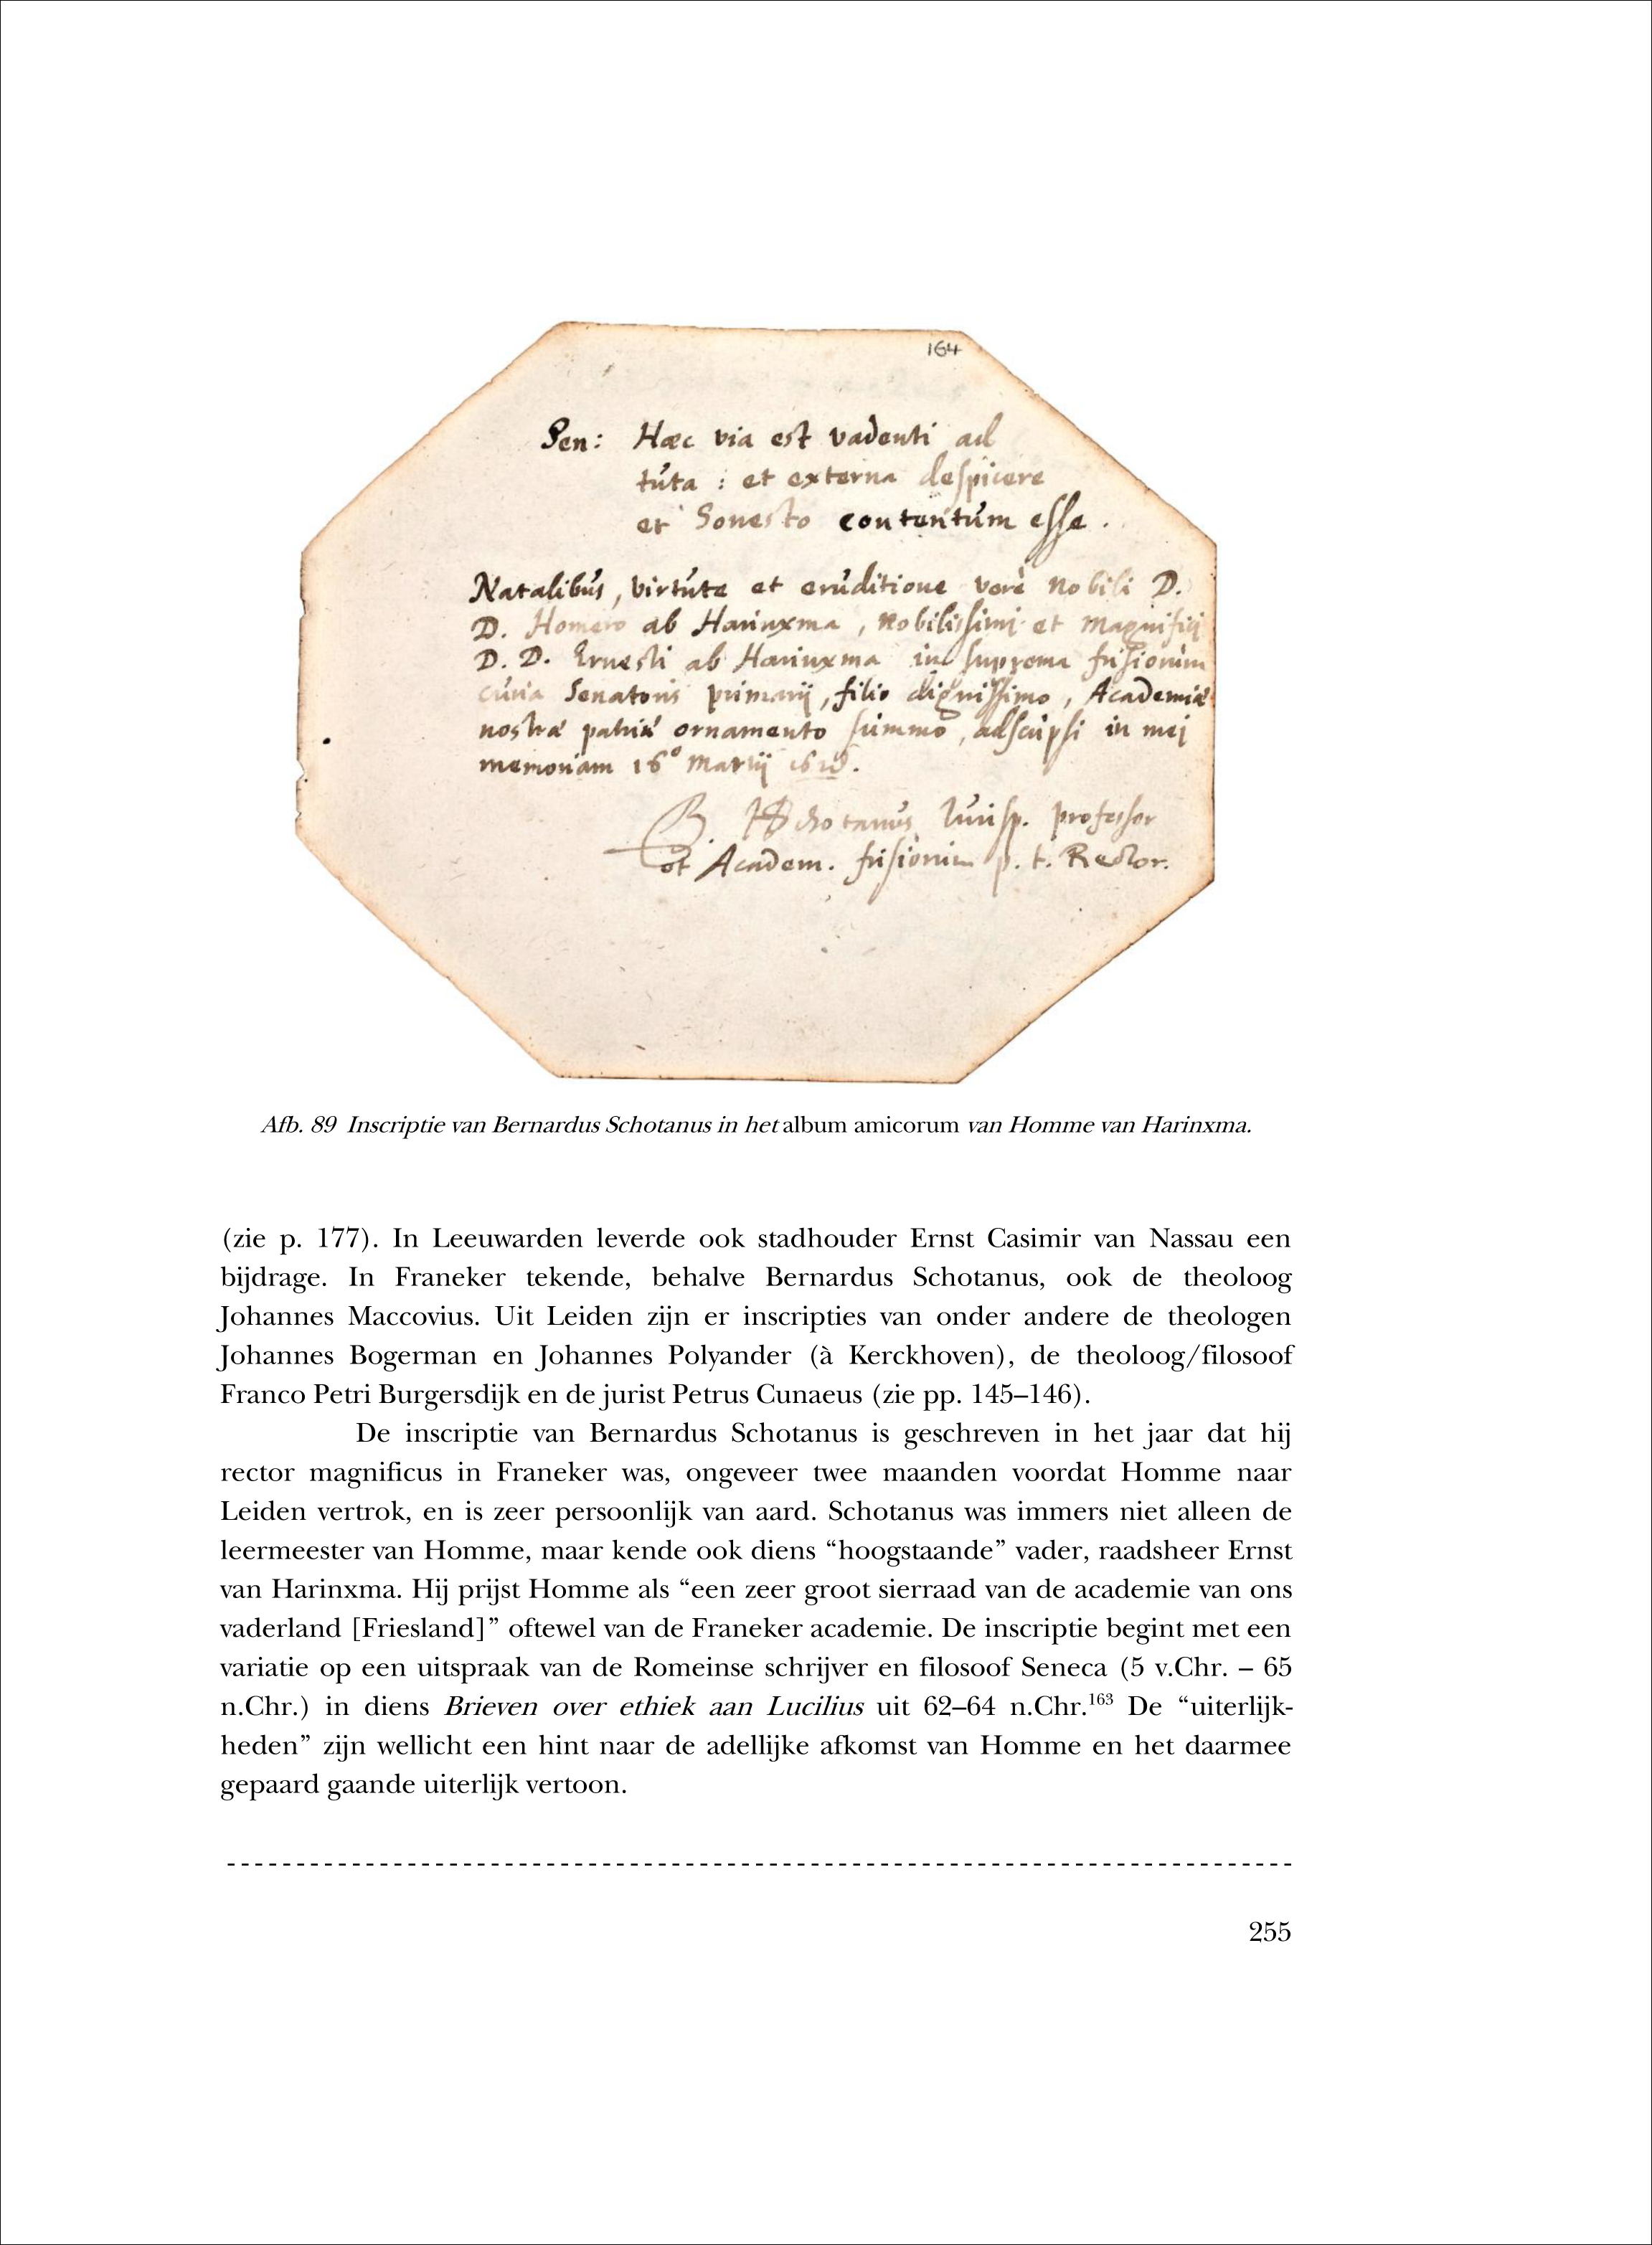 164
Sen: Hæc via est vadenti ad
túta : et externa despicere
et honesto contentúm esse.
Natalibús, virtúte et erúditione verè nobili D.
D. Homero ab Harinxma, nobilissimi et magnifici
D. D. Ernesti ab Harinxma in suprema frisiorúm
cúria Senatoris primarij, filio dignissimo, Academiæ
nostræ patriæ ornamento súmmo, adscripsi in mei
memoriam 16° Martij
B. Schotanús Iúrisp. professor
et Academ. frisiorúm p. t. Rector.
Afb. 89 Inscriptie van Bernardus Schotanus in het album amicorum van Homme van Harinxma.
(zie p. 177). In Leeuwarden leverde ook stadhouder Ernst Casimir van Nassau een
bijdrage. In Franeker tekende, behalve Bernardus Schotanus, ook de theoloog
Johannes Maccovius. Uit Leiden zijn er inscripties van onder andere de theologen
Johannes Bogerman en Johannes Polyander (à Kerckhoven), de theoloog/filosoof
Franco Petri Burgersdijk en de jurist Petrus Cunaeus (zie pp. 145–146).
De inscriptie van Bernardus Schotanus is geschreven in het jaar dat hij
rector magnificus in Franeker was, ongeveer twee maanden voordat Homme naar
Leiden vertrok, en is zeer persoonlijk van aard. Schotanus was immers niet alleen de
leermeester van Homme, maar kende ook diens “hoogstaande” vader, raadsheer Ernst
van Harinxma. Hij prijst Homme als “een zeer groot sierraad van de academie van ons
vaderland [Friesland]” oftewel van de Franeker academie. De inscriptie begint met een
variatie op een uitspraak van de Romeinse schrijver en filosoof Seneca (5 v.Chr. – 65
n.Chr.) in diens Brieven over ethiek aan Lucilius uit 62–64 n.Chr.163 De “uiterlijk-
heden” zijn wellicht een hint naar de adellijke afkomst van Homme en het daarmee
gepaard gaande uiterlijk vertoon.
255